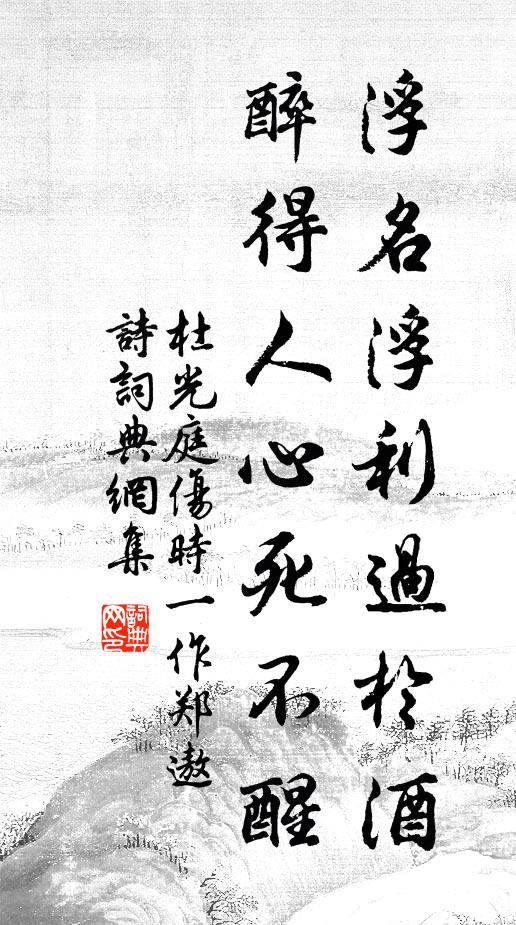 浮名浮利過於酒
醉得人心死不醒
杜光庭傷時一作郑遨
詩詞典網集
詞典
网印